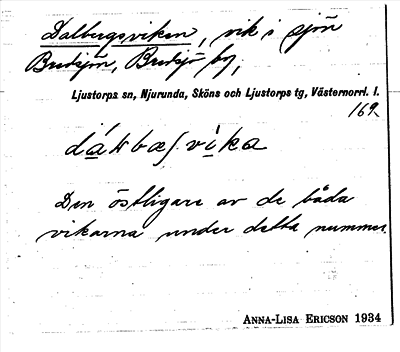 Dalbergsviken, vik i sjön
Bredsjön, Bredsjö by,
Ljustorps sn, Njurunda, Sköns och Ljustorps tg, Västernorrl. l.
169.
Den östligare av de båda
vikarna under detta nummer.
ANNA-LISA ERICSON 1934